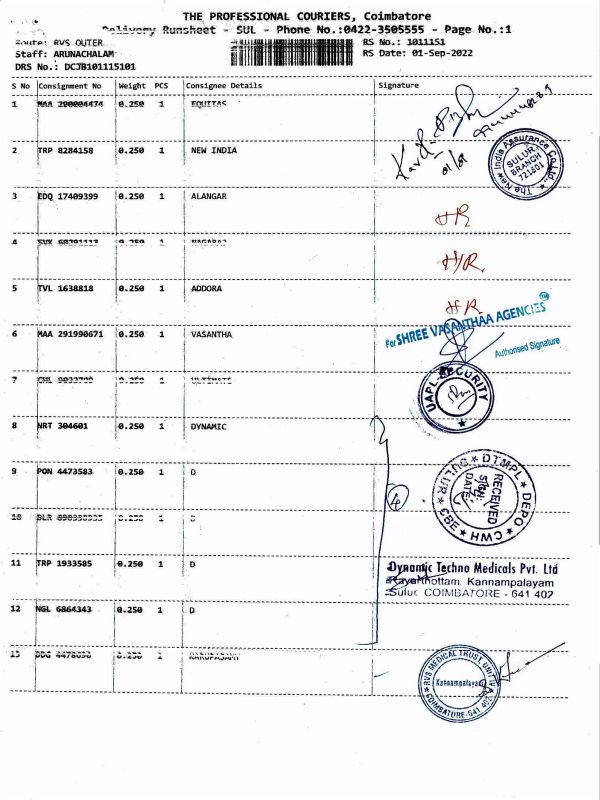 THE PROFESSIONAL COURIERS, Coimbatore
Delivery Runsheet - SUL - Phone No.:0422-3505555 - Page No.:1
Route: RVS OUTER
RS No.: 1011151
Staff: ARUNACHALAM
RS Date: 01-Sep-2022
DRS No.: DCJB101115101
S No Consignment No Weight PCS Consignee Details Signature
1 MAA 290004474 0.250 1 EQUITAS
2 TRP 8284158 0.250 1 NEW INDIA
The New India Assurance Co. Ltd.
SULUR
BRANCH
721601
3 EDQ 17409399 0.250 1 ALANGAR
HR
4 SVK 0.250 1 NAGARAJ
H/R.
5 TVL 1638818 0.250 1 ADDORA
HR
For SHREE VASANTHAA AGENCIES
6 MAA 291990671 0.250 1 VASANTHA
Authorised Signature
7 0.250 1 ULTIMATE
UAPL-SECURITY
8 NRT 304601 0.250 1 DYNAMIC
9 PON 4473583 0.250 1 D
4
DTMPL * DEPO * CWH * CBE * SULUR
RECEIVED
DATE
10 BLR 0.250 1 D
11 TRP 1933585 0.250 1 D
Dynamic Techno Medicals Pvt. Ltd
Kannampalayam
Sulur, COIMBATORE - 641 402
12 NGL 6864343 0.250 1 D
13 DDG 0.250 1 KARUPASAMI
RVS MEDICAL TRUST UNIT IV
Kannampalayam
COIMBATORE-641 402